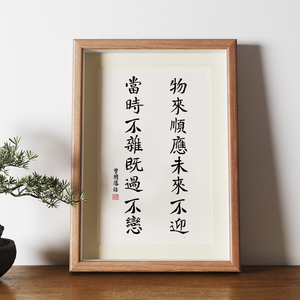 物來順應未來不迎
當時不雜既過不戀
曾國藩